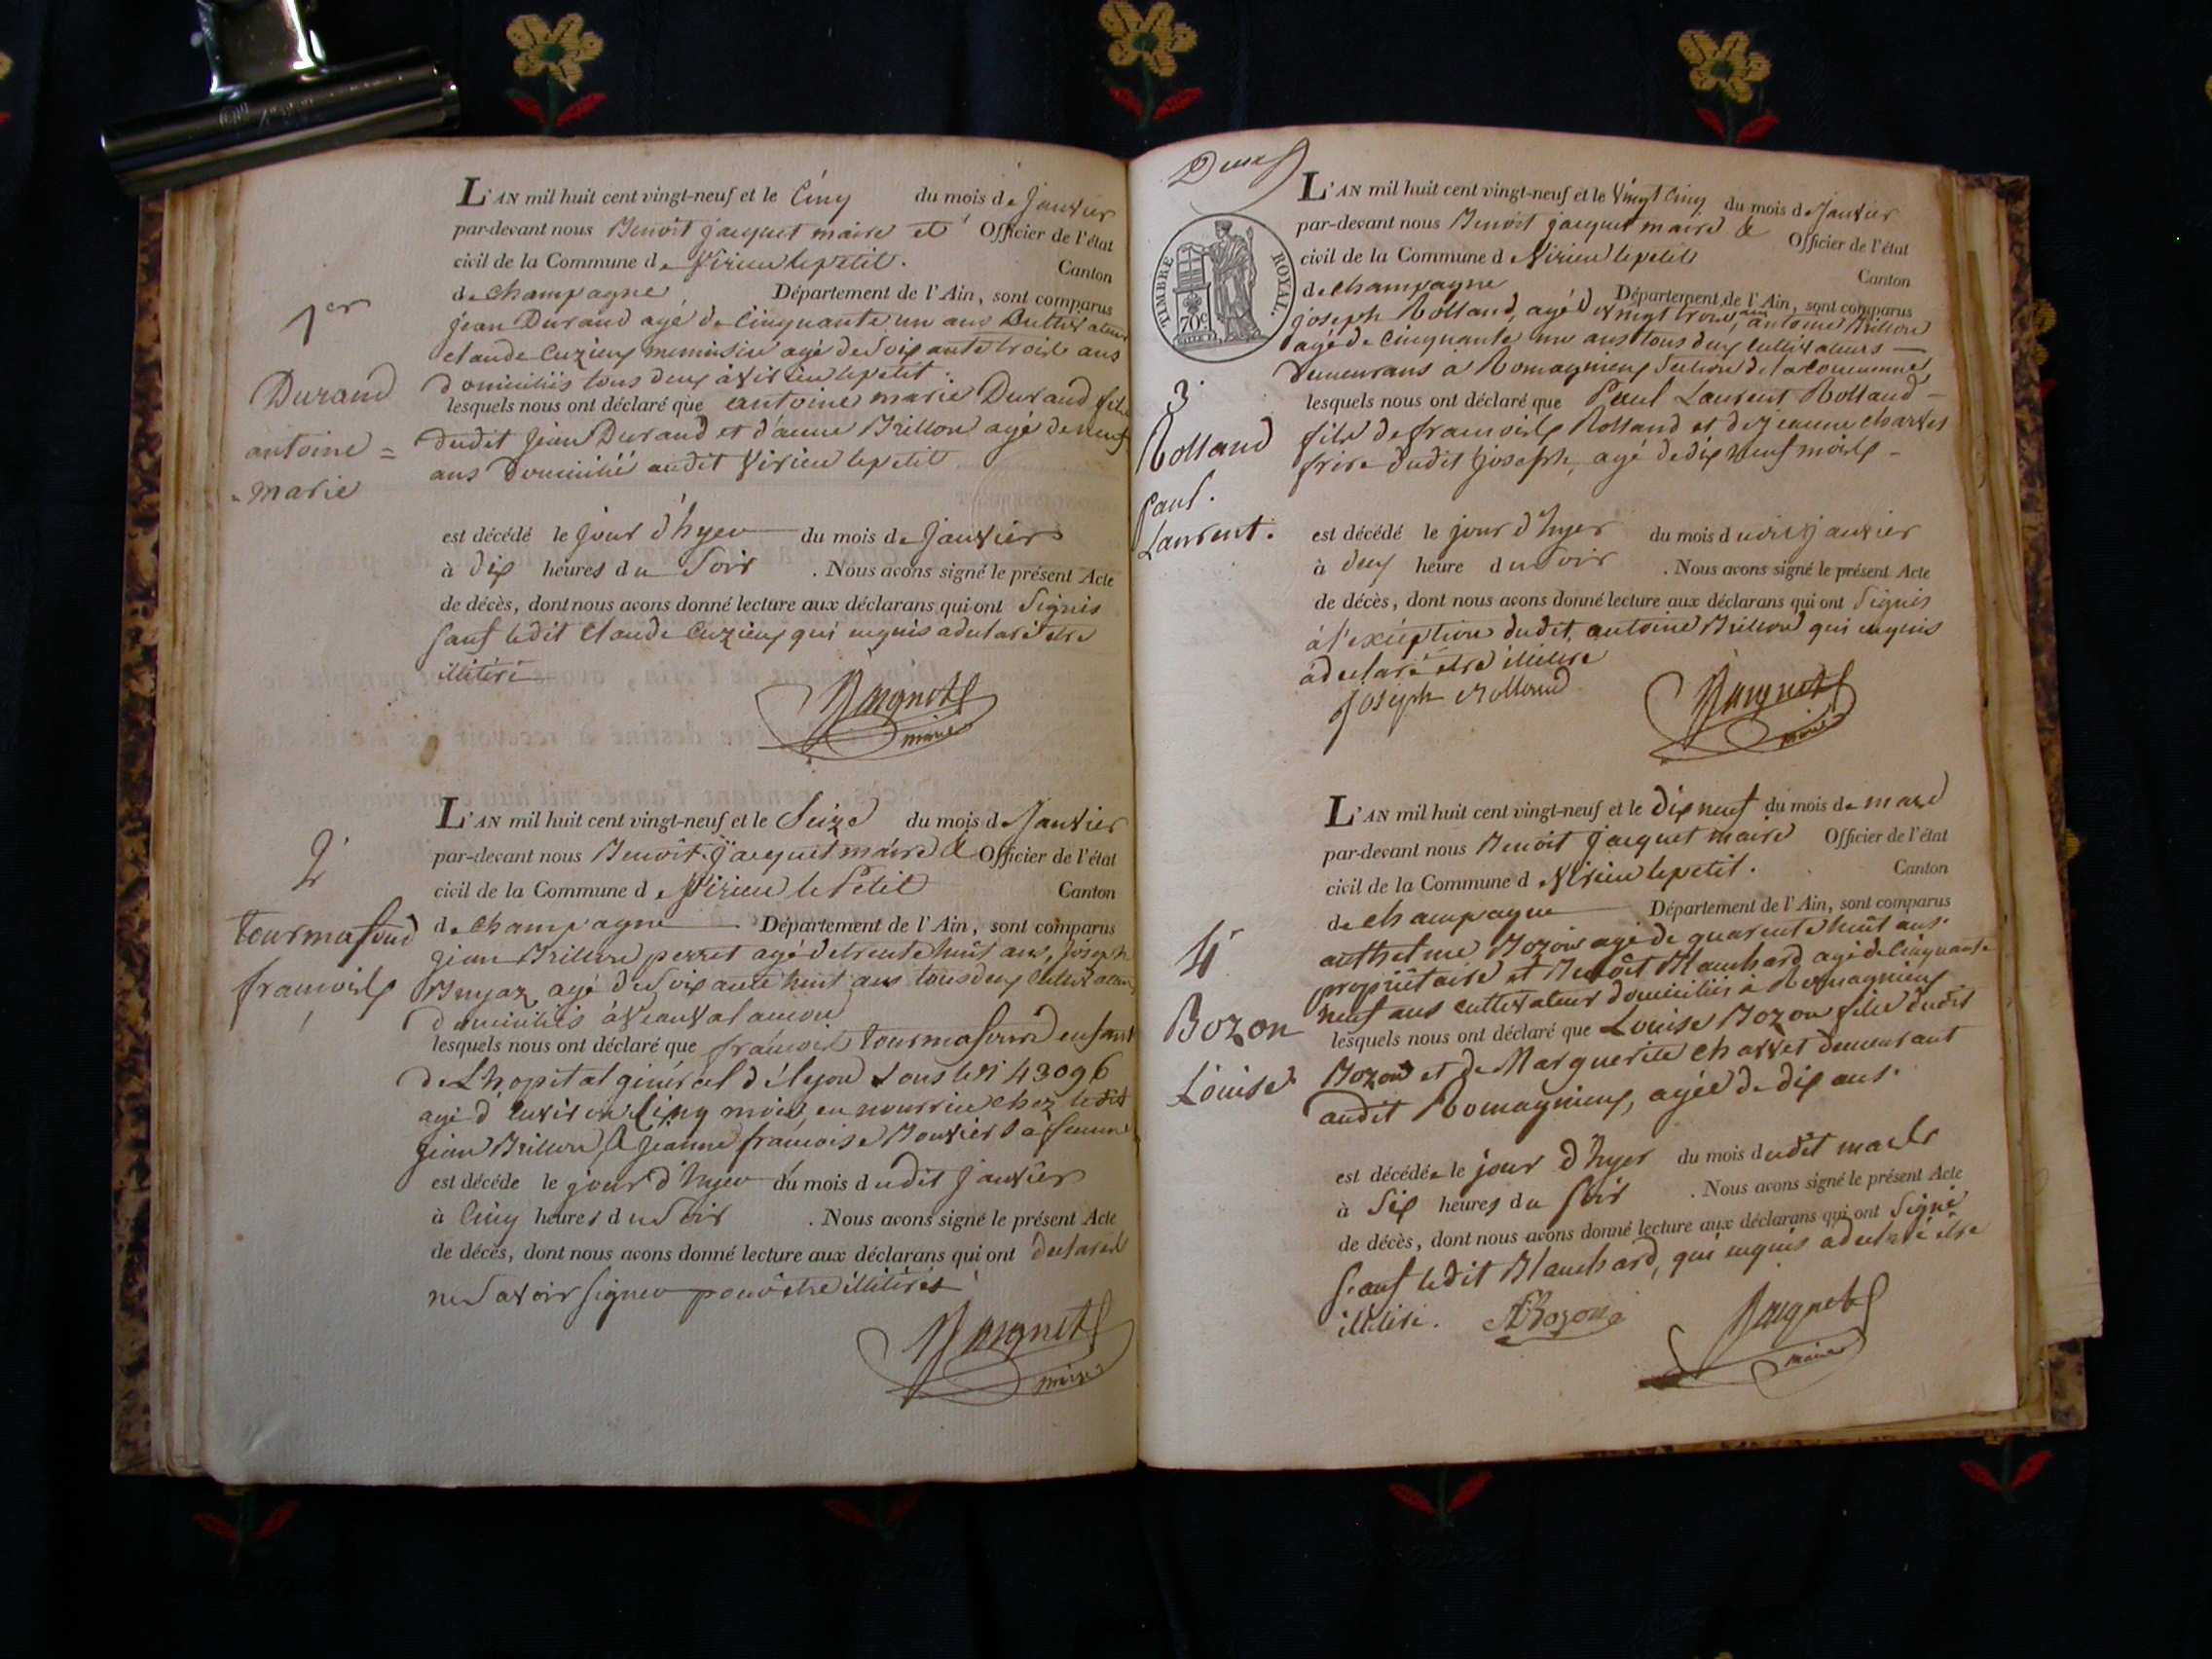 1er
Durand
antoine =
marie
L'AN mil huit cent vingt-neuf et le Cinq du mois de Janvier
par-devant nous Benoit jacquet maire et Officier de l'état
civil de la Commune de Virieu le petit. Canton
de champagne, Département de l'Ain, sont comparus
jean Durand agé de Cinquante un ans Cultivateur
claude Cuzieux menuisier agé de Soixante trois ans
domiciliés tous deux à Virieu le petit.
lesquels nous ont déclaré que antoine marie Durand fils
dudit jean Durand et d'anne Brillon agé de neuf
ans Domicilié audit Virieu le petit
est décédé le jour d'hyer du mois de janvier
à dix heures du Soir . Nous avons signé le présent Acte
de décès, dont nous avons donné lecture aux déclarans qui ont Signés
Sauf ledit Claude Cuzieux qui enquis a declaré etre
illitéré
Jacquet
maire
2
tourmasoud
francois
L'AN mil huit cent vingt-neuf et le Seize du mois de Janvier
par-devant nous Benoit Jacquet maire & Officier de l'état
civil de la Commune de Virieu le Petit Canton
de champagne Département de l'Ain, sont comparus
jean Brillon perret agé de trente huit ans, joseph
agé de Soixante huit ans tous deux Cultivateurs
domiciliés à
lesquels nous ont déclaré que francois tourmasoud enfant
de Lhopital général de lyon sous le n° 43096
agé d'environ Cinq mois en nourrice chez ledit
jean Brillon & jeanne francoise Bouvier Sa femme
est décédé le jour d'hyer du mois dudit janvier
à Cinq heures du Soir . Nous avons signé le présent Acte
de décès, dont nous avons donné lecture aux déclarans qui ont declarés
ne Savoir signer pour être illitérés
Jacquet
maire
Deux
TIMBRE ROYAL.
70c
3
Rolland
Paul.
Laurent.
L'AN mil huit cent vingt-neuf et le Vingt Cinq du mois de Janvier
par-devant nous Benoit jacquet maire & Officier de l'état
civil de la Commune de Virieu le petit Canton
de champagne Département de l'Ain, sont comparus
joseph Rolland, agé de vingt trois ans, antoine Brillon
agé de Cinquante un ans tous deux Cultivateurs
demeurans à Romagnieux Section de la commune
lesquels nous ont déclaré que Paul Laurent Rolland
fils de francois Rolland et de jeanne charvet
frere dudit joseph, agé de dix neuf mois
est décédé le jour d'hyer du mois dudit janvier
à deux heure du Soir . Nous avons signé le présent Acte
de décès, dont nous avons donné lecture aux déclarans qui ont Signés
à l'exception dudit antoine Brillon qui enquis
a declaré etre illitéré
Joseph Rolland
Jacquet
maire
4
Bozon
Louise
L'AN mil huit cent vingt-neuf et le dix neuf du mois de mars
par-devant nous Benoit Jacquet maire Officier de l'état
civil de la Commune de Virieu le petit. Canton
de champagne Département de l'Ain, sont comparus
anthelme Bozon agé de quarente huit ans
propriétaire et Benoît Blanchard agé de Cinquante
neuf ans cultivateur domiciliés à Romagnieux
lesquels nous ont déclaré que Louise Bozon fille dudit
Bozon et de Marguerite Charvet demeurant
audit Romagnieux, agée de dix ans.
est décédée le jour d'hyer du mois dudit mars
à Six heures du Soir . Nous avons signé le présent Acte
de décès, dont nous avons donné lecture aux déclarans qui ont Signé
Sauf ledit Blanchard, qui enquis a declaré etre
illitéré. ABozon
Jacquet
maire